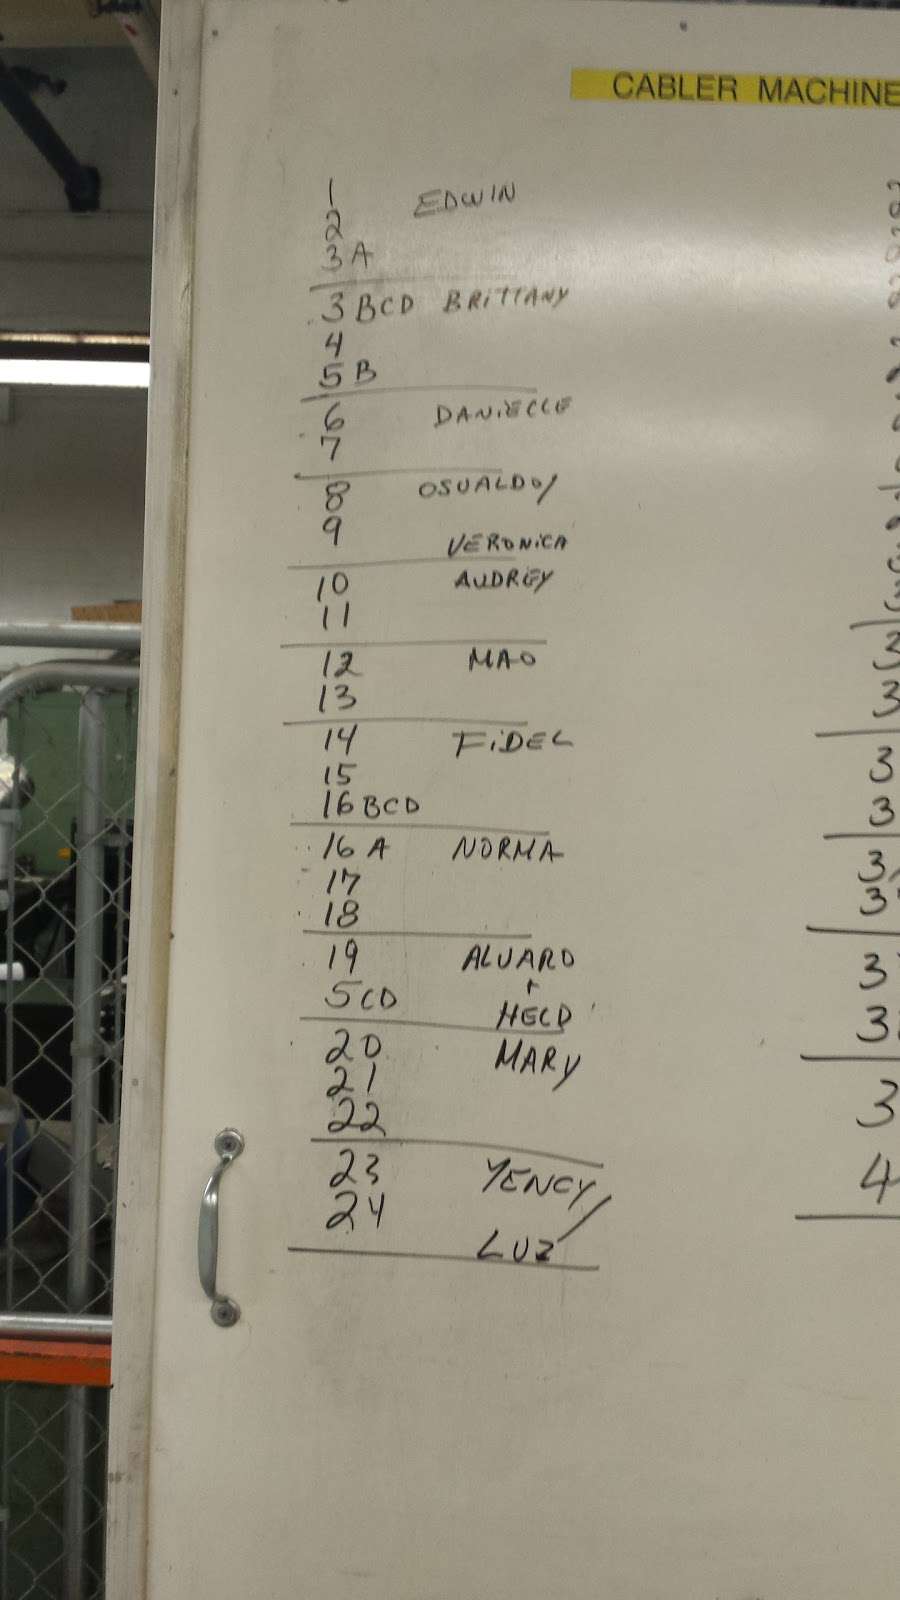 CABLER MACHINE
1 EDWIN
2
3A
3 BCD BRITTANY
4
5 B
6 DANIELLE
7
8 OSUALDO/
9
VERONICA
10 AUDREY
11
12 MAO
13
14 FIDEL
15
16 BCD
16 A NORMA
17
18
19 ALVARO
+
5 CD HECD
20 MARY
21
22
23 YENCY/
24
LUZ